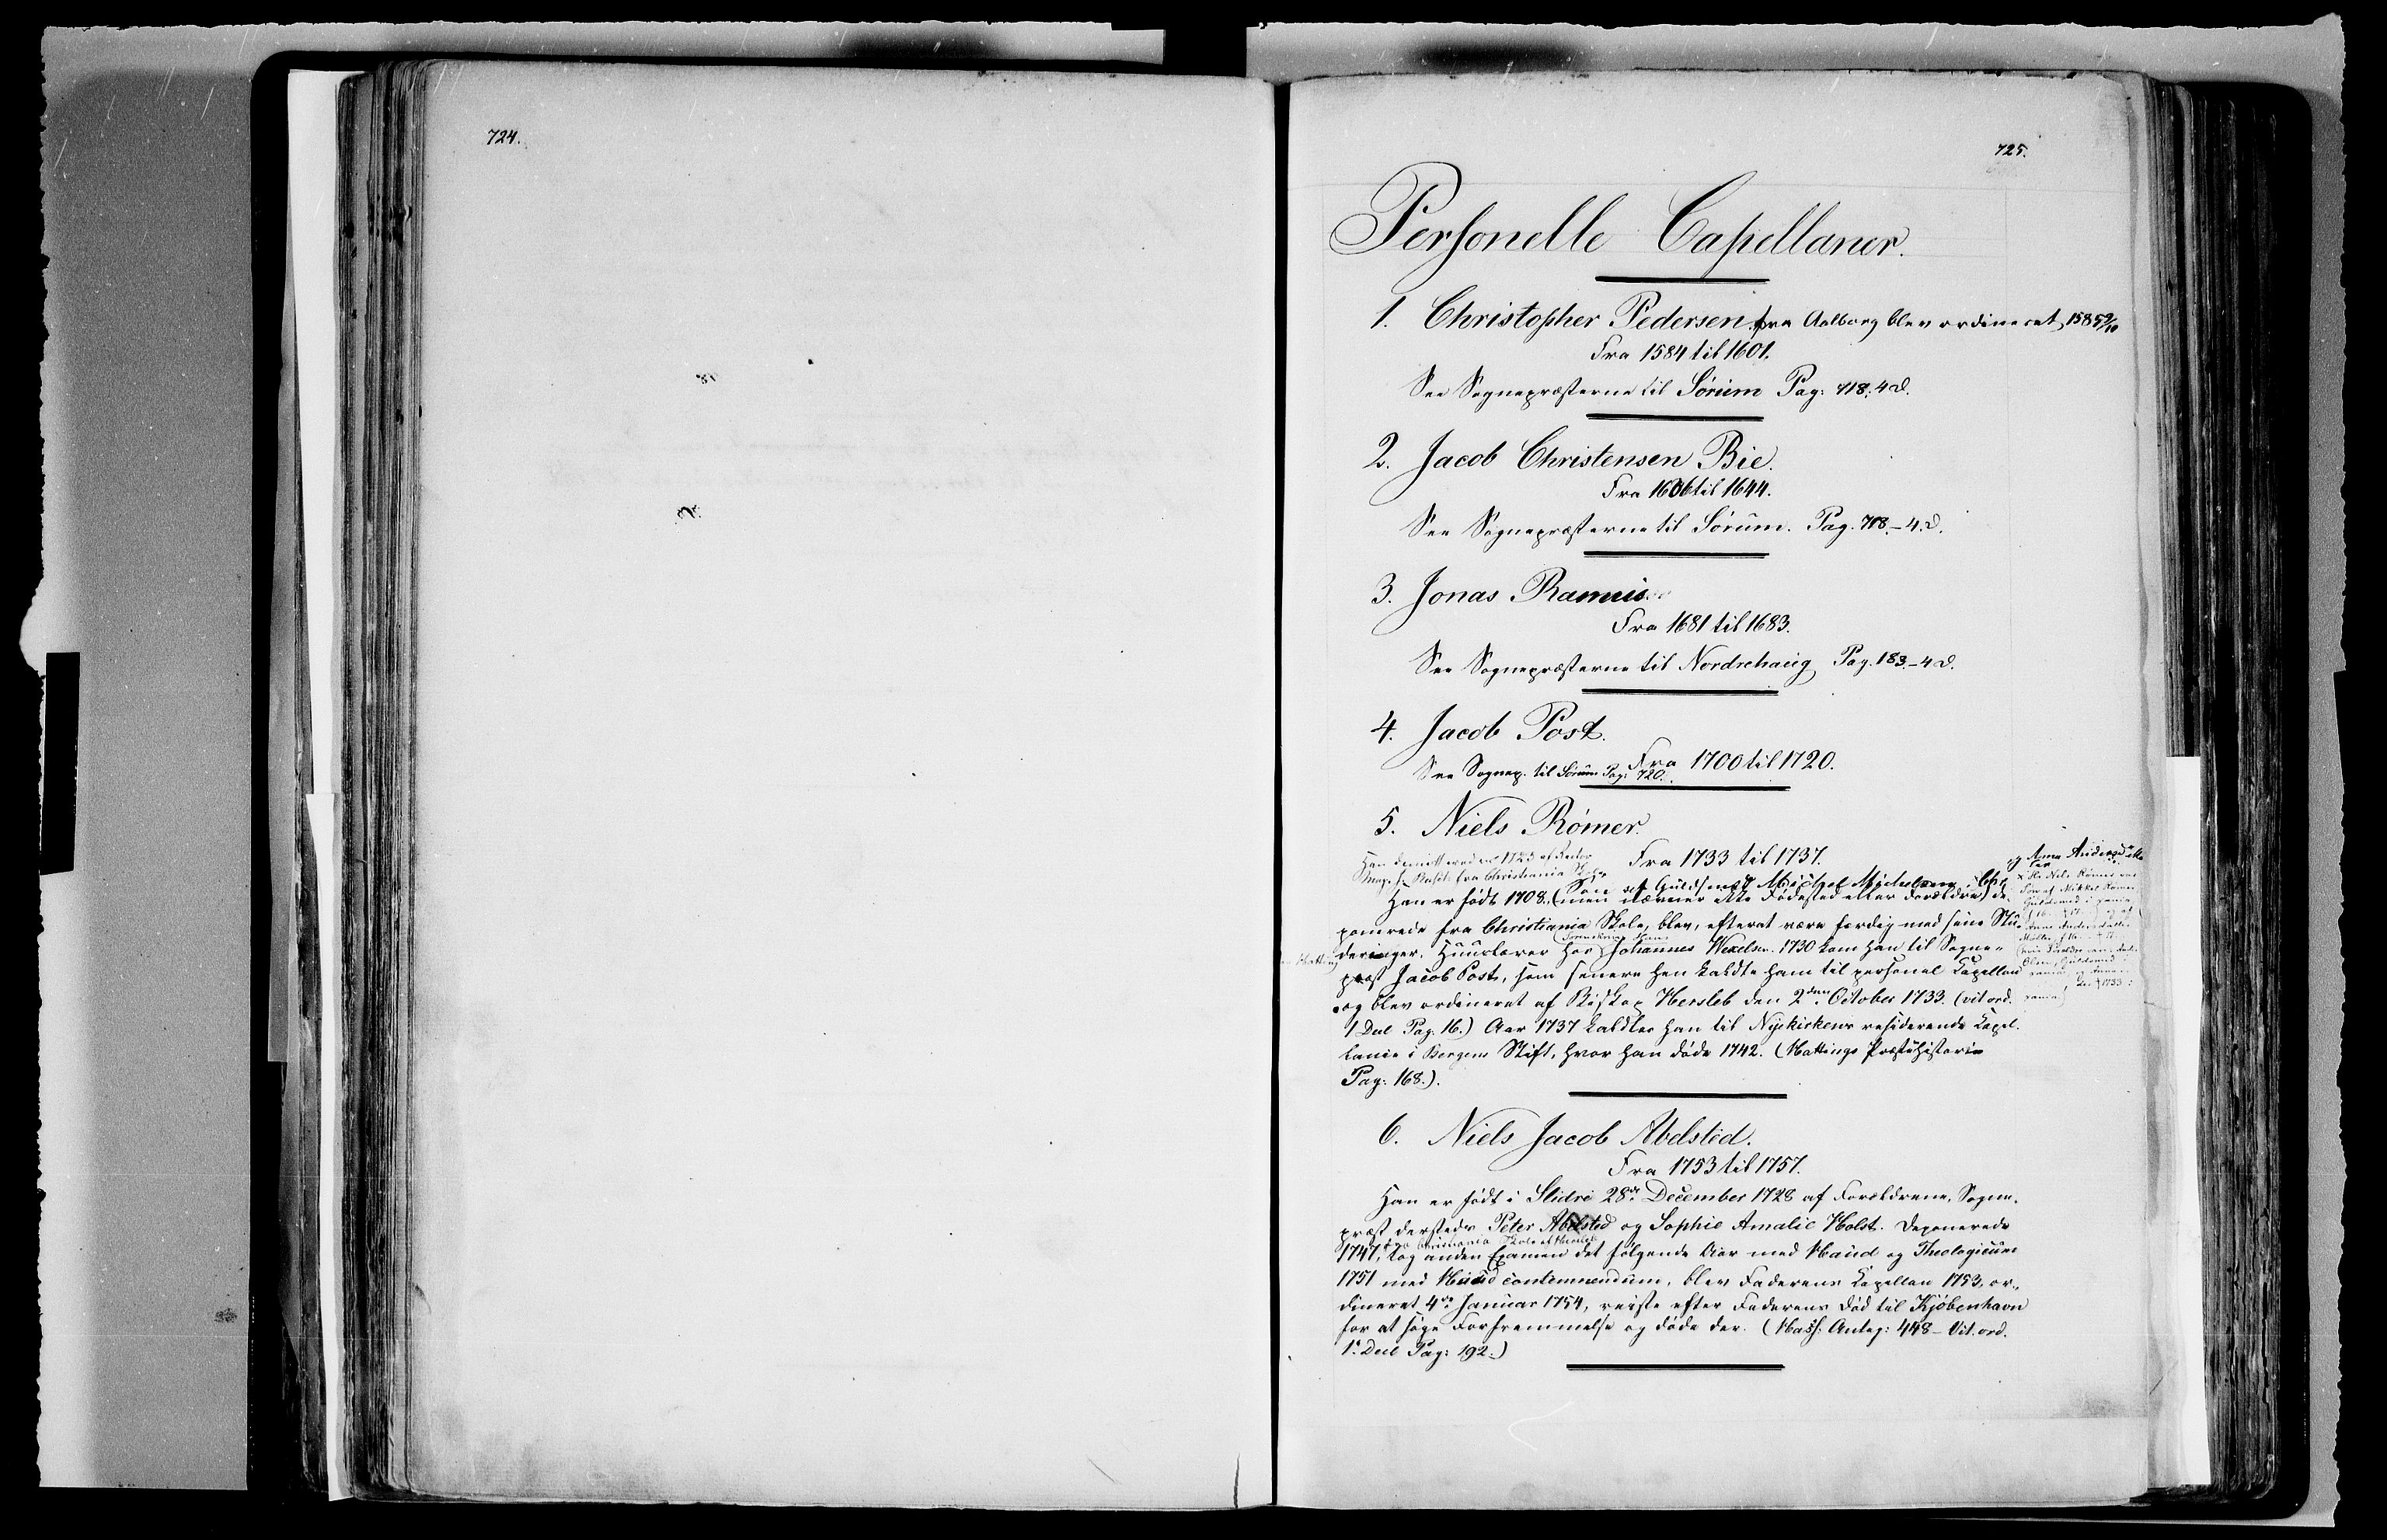 724.
725.
Personelle Capellaner.
1. Christopher Pedersen. fra Aalborg blev ordineret 1585 9/10
Fra 1584 til 1601.
See Sognepræsterne til Sórum Pag: 718. 4 d.
2. Jacob Christensen Bie.
Fra 1606 til 1644.
See Sognepræsterne til Sórum. Pag. 718. – 4. d.
3. Jonas Ramus
Fra 1681 til 1683.
See Sognepræsterne til Nordrehaug Pag. 183. – 4 d.
4. Jacob Post.
Fra 1700 til 1720.
See Sognep. til Sórum Pag: 720.
5. Niels Rómer.
Fra 1733 til 1737.
fra Christiania Skole
og Anna Anders
Søn af Guldsmed Michel Michelsen
Han er født 1708. (men nævner ikke Fødested eller Forældre) de-
ponerede fra Christiania Skole, blev, efterat være færdig med sine Stu-
deringer, Huuslærer hos Johannes Wexelsen. 1730 kom han til Sogne-
præst Jacob Post, som senere hen kaldte ham til personel Capellan
og blev ordineret af Biskop Hersleb den 2den October 1733. (vit. ord.
1 Deel Pag. 16.) Aar 1737 kaldtes han til Nykirkens residerende Capel-
lanie i Bergens Stift, hvor han døde 1742. (Hattings Præstehistorie
Pag: 168.).
6. Niels Jacob Abelsted.
Fra 1753 til 1757.
Han er født i Slidre 28de December 1728 af Forældrene, Sogne-
præst dersteds Peter Abelsted og Sophie Amalie Holst. Deponerede
fra Christiania Skole af Hersleb
1747, tog anden Examen det følgende Aar med Haud og Theologicum
1751 med Haud contemnendum, blev Faderens Capellan 1753, or-
dineret 4de Januar 1754, reiste efter Faderens Død til Kjøbenhavn
for at søge Forfremmelse og døde der. (Mass. Anteg: 448 – Vit. ord.
1. Deel Pag: 192.)